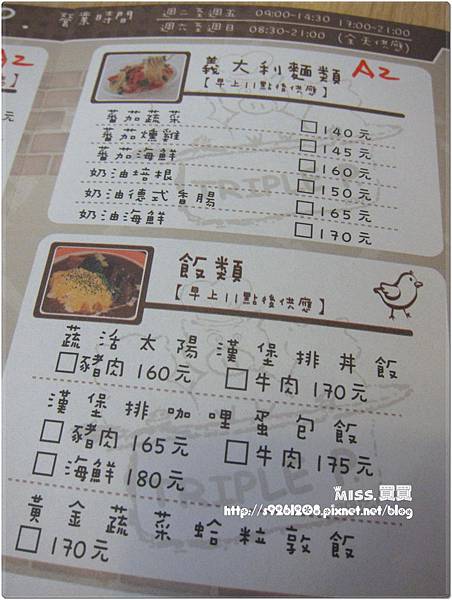 營業時間 週二至週五 09:00-14:30 17:00-21:00
週六至週日 08:30-21:00 (全天供應)
義大利麵類 A2
【早上11點後供應】
蕃茄蔬菜 □140元
蕃茄燻雞 □145元
蕃茄海鮮 □160元
奶油培根 □150元
奶油德式香腸 □165元
奶油海鮮 □170元
飯類
【早上11點後供應】
蔬活太陽漢堡排丼飯
□豬肉 160元 □牛肉 170元
漢堡排咖哩蛋包飯
□豬肉 165元 □牛肉 175元
□海鮮 180元
黃金蔬菜蛤粒燉飯
□170元
TRIPLE
TRIPLE
MISS.買買
http://s9261208.pixnet.net/blog